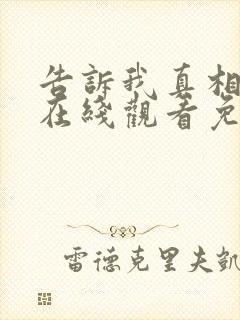 告訴我真相
在綫觀看免
雷德克里夫凱